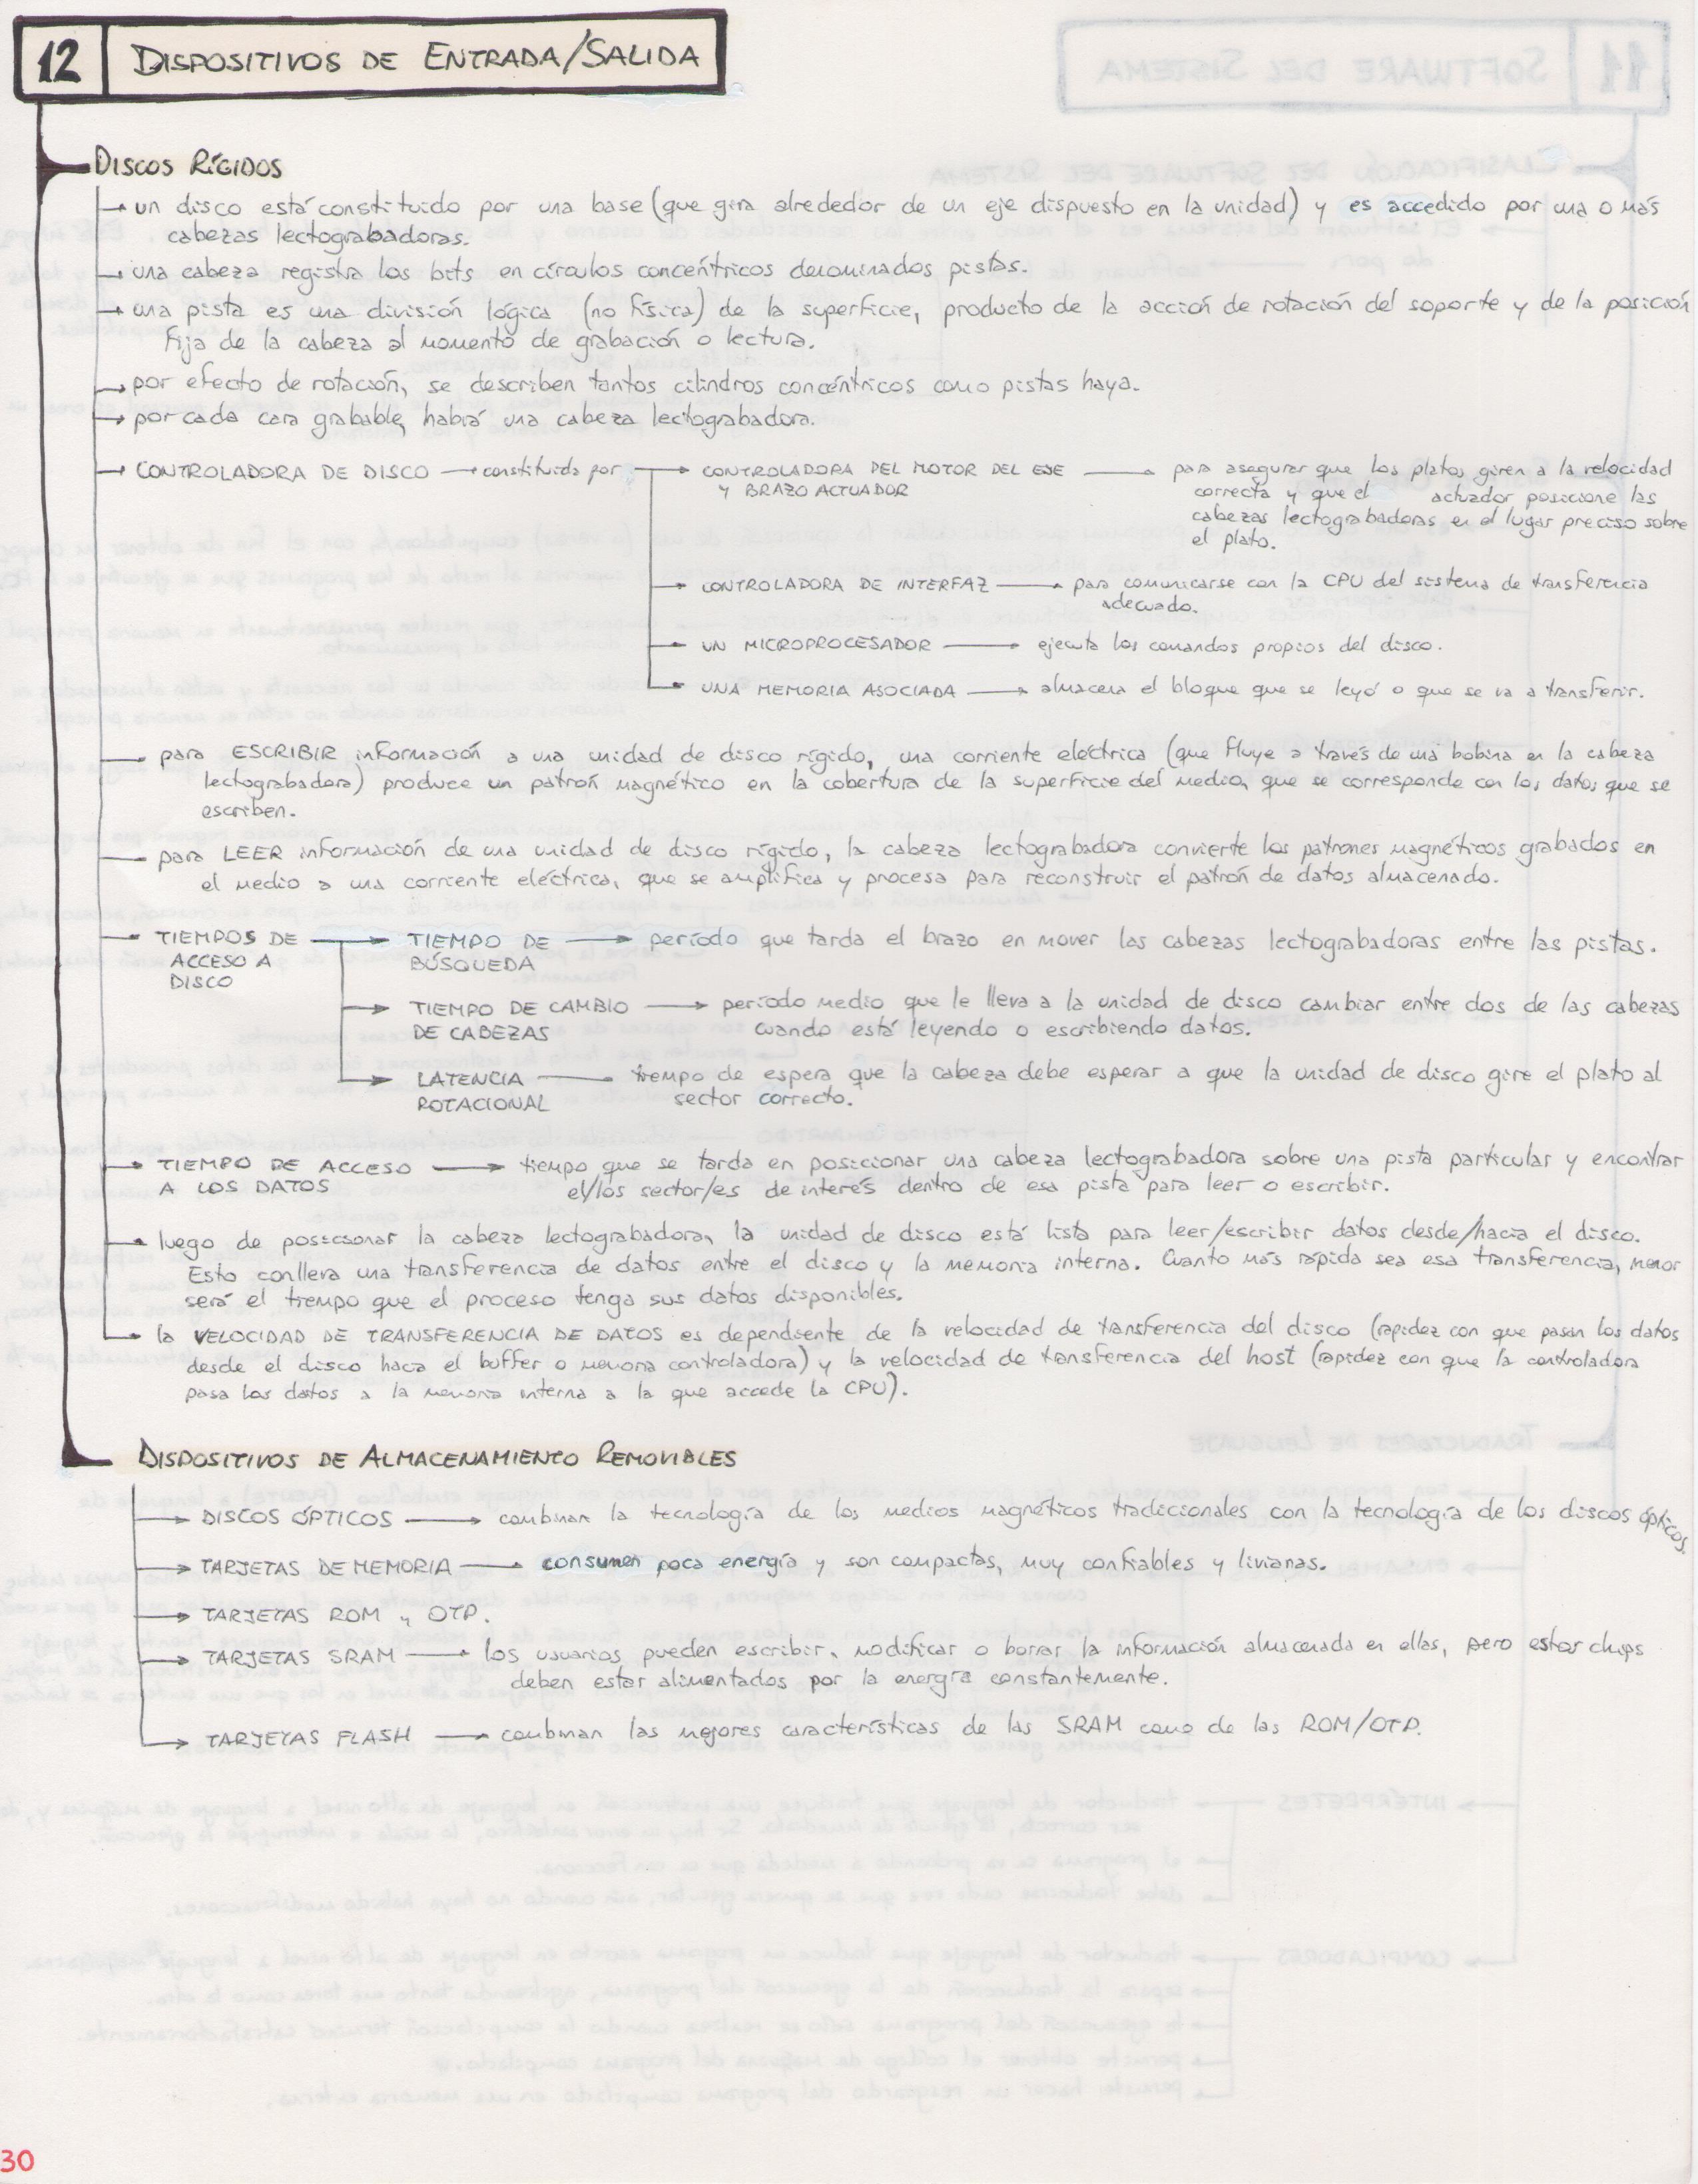 12 DISPOSITIVOS DE ENTRADA/SALIDA
DISCOS RÍGIDOS
un disco está constituido por una base (que gira alrededor de un eje dispuesto en la unidad) y es accedido por una o más
cabezas lectograbadoras.
una cabeza registra los bits en círculos concéntricos denominados pistas.
una pista es una división lógica (no física) de la superficie, producto de la acción de rotación del soporte y de la posición
fija de la cabeza al momento de grabación o lectura.
por efecto de rotación, se describen tantos cilindros concéntricos como pistas haya.
por cada cara grabable, habrá una cabeza lectograbadora.
CONTROLADORA DE DISCO → constituida por → CONTROLADORA DEL MOTOR DEL EJE → para asegurar que los platos giren a la velocidad
Y BRAZO ACTUADOR correcta y que el actuador posicione las
cabezas lectograbadoras en el lugar preciso sobre
el plato.
CONTROLADORA DE INTERFAZ → para comunicarse con la CPU del sistema de transferencia
adecuado.
UN MICROPROCESADOR → ejecuta los comandos propios del disco.
UNA MEMORIA ASOCIADA → almacena el bloque que se leyó o que se va a transferir.
para ESCRIBIR información a una unidad de disco rígido, una corriente eléctrica (que fluye a través de una bobina en la cabeza
lectograbadora) produce un patrón magnético en la cobertura de la superficie del medio, que se corresponde con los datos que se
escriben.
para LEER información de una unidad de disco rígido, la cabeza lectograbadora convierte los patrones magnéticos grabados en
el medio a una corriente eléctrica, que se amplifica y procesa para reconstruir el patrón de datos almacenado.
TIEMPOS DE → TIEMPO DE → período que tarda el brazo en mover las cabezas lectograbadoras entre las pistas.
ACCESO A BÚSQUEDA
DISCO
TIEMPO DE CAMBIO → período medio que le lleva a la unidad de disco cambiar entre dos de las cabezas
DE CABEZAS cuando está leyendo o escribiendo datos.
LATENCIA → tiempo de espera que la cabeza debe esperar a que la unidad de disco gire el plato al
ROTACIONAL sector correcto.
TIEMPO DE ACCESO → tiempo que se tarda en posicionar una cabeza lectograbadora sobre una pista particular y encontrar
A LOS DATOS el/los sector/es de interés dentro de esa pista para leer o escribir.
luego de posicionar la cabeza lectograbadora, la unidad de disco está lista para leer/escribir datos desde/hacia el disco.
Esto conlleva una transferencia de datos entre el disco y la memoria interna. Cuanto más rápida sea esa transferencia, menor
será el tiempo que el proceso tenga sus datos disponibles.
la VELOCIDAD DE TRANSFERENCIA DE DATOS es dependiente de la velocidad de transferencia del disco (rapidez con que pasan los datos
desde el disco hacia el buffer o memoria controladora) y la velocidad de transferencia del host (rapidez con que la controladora
pasa los datos a la memoria interna a la que accede la CPU).
DISPOSITIVOS DE ALMACENAMIENTO REMOVIBLES
DISCOS ÓPTICOS → combinan la tecnología de los medios magnéticos tradicionales con la tecnología de los discos ópticos.
TARJETAS DE MEMORIA → consumen poca energía y son compactas, muy confiables y livianas.
TARJETAS ROM y OTP.
TARJETAS SRAM → los usuarios pueden escribir, modificar o borrar la información almacenada en ellas, pero estos chips
deben estar alimentados por la energía constantemente.
TARJETAS FLASH → combinan las mejores características de las SRAM como de las ROM/OTP.
30